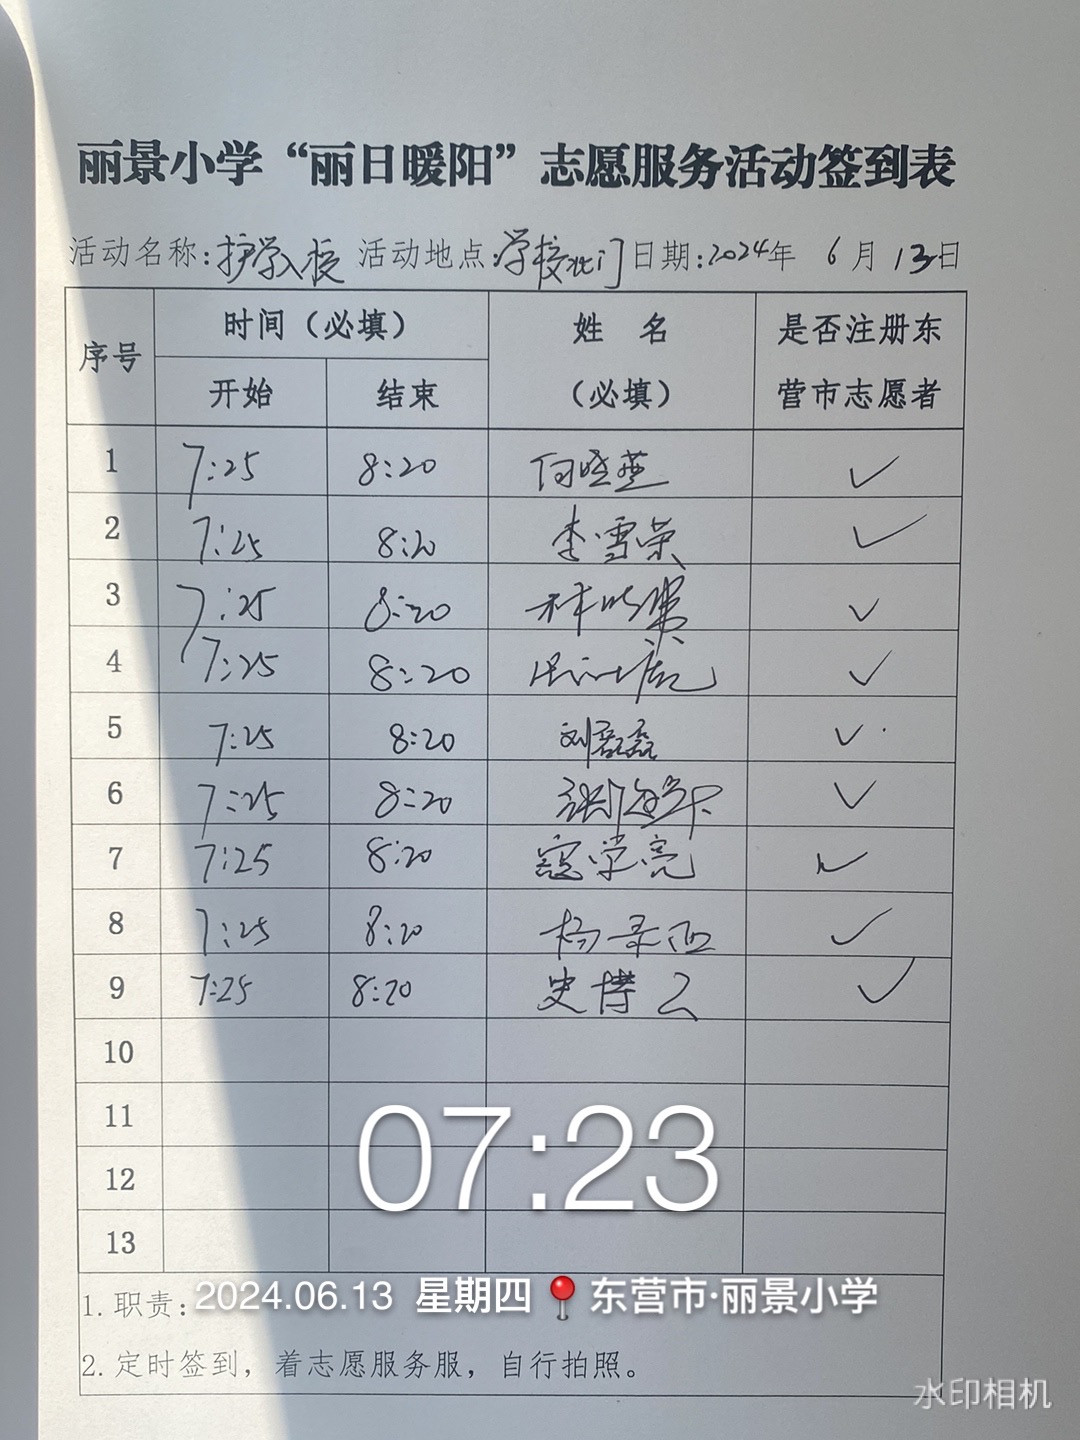 丽景小学“丽日暖阳”志愿服务活动签到表
活动名称:护学入校 活动地点:学校北门 日期:2024年 6月13日
序号 时间（必填） 姓 名（必填） 是否注册东营市志愿者
开始 结束
1 7:25 8:20 何晓燕 ✓
2 7:25 8:20 李雪荣 ✓
3 7:25 8:20 ✓
4 7:25 8:20 ✓
5 7:25 8:20 刘磊磊 ✓
6 7:25 8:20 ✓
7 7:25 8:20 寇学亮 ✓
8 7:25 8:20 杨 ✓
9 7:25 8:20 史博 ✓
10
11
12
13
07:23
1.职责:
2024.06.13 星期四 东营市·丽景小学
2.定时签到，着志愿服务服，自行拍照。
水印相机